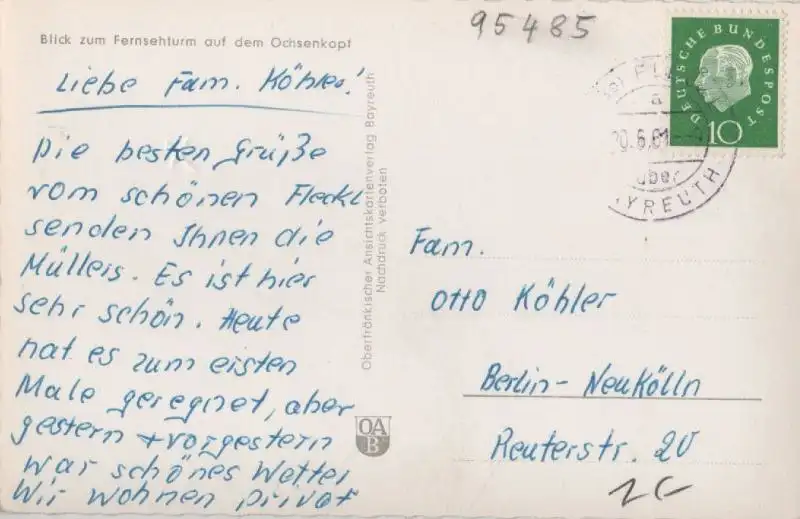 95485
Blick zum Fernsehturm auf dem Ochsenkopf
Liebe Fam. Köhler!
Die besten Grüße
vom schönen Fleckl
senden Ihnen die
Müllers. Es ist hier
sehr schön. Heute
hat es zum ersten
Male geregnet, aber
gestern + vorgestern
war schönes Wetter
Wir wohnen privat
Oberfränkischer Ansichtskartenverlag Bayreuth
Nachdruck verboten
OA
B
DEUTSCHE BUNDESPOST
10
20.6.61
über
BAYREUTH
Fam.
Otto Köhler
Berlin-Neukölln
Reuterstr. 20